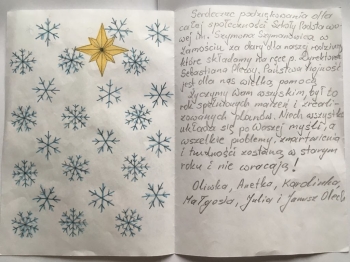 Serdeczne podziękowania dla
całej społeczności Szkoły Podstawo-
wej im. Szymona Szymonowica w
Zamościu za dary dla naszej rodziny,
które składamy na ręce p. Dyrektora
Sebastiana Państwa hojność
jest dla nas wielką pomocą.
Życzymy Wam wszystkim, by był to
rok spełnionych marzeń i zreali-
zowanych planów. Niech wszystko
układa się po Waszej myśli, a
wszelkie problemy, zmartwienia
i trudności zostaną w starym
roku i nie wracają!
Oliwka, Anetka, Karolinka,
Małgosia, Julia i Janusz